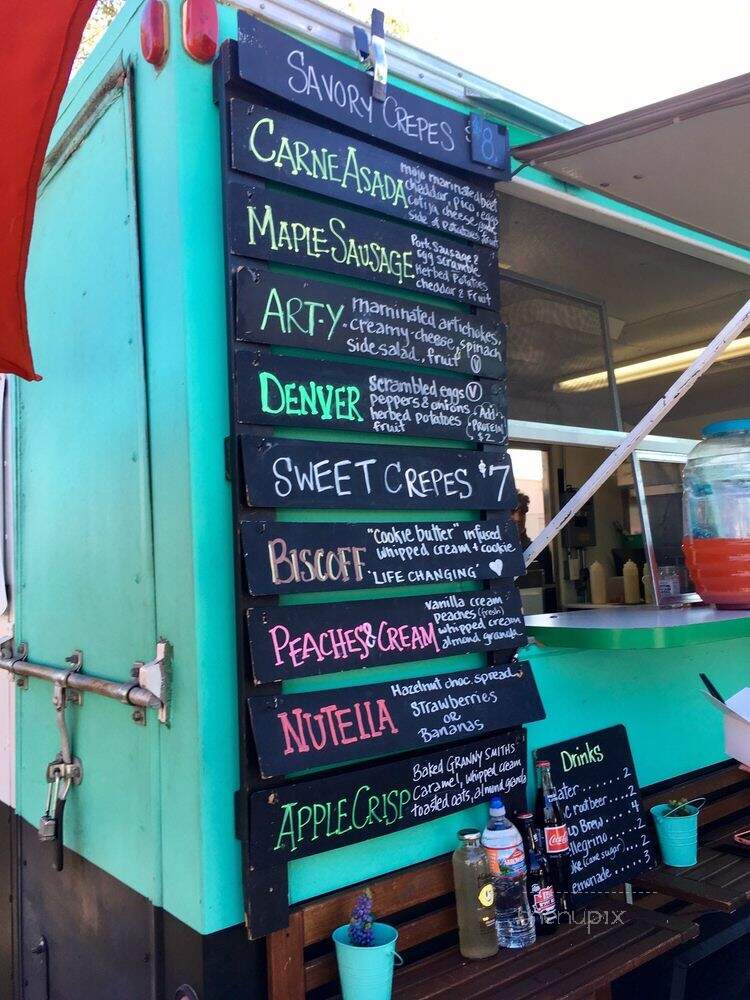 SAVORY CREPES $8
CARNE ASADA
mojo marinated beef
cheddar, pico, eggs
cotija cheese,
side of potatoes, fruit
MAPLE SAUSAGE
Pork Sausage &
Egg scramble
Herbed Potatoes
cheddar & Fruit
ART-Y
marninated artichokes,
creamy-cheese, spinach
side salad, fruit V
DENVER
scrambled eggs V
peppers & onions
herbed potatoes
fruit
+Add
PROTEIN
$2
SWEET CREPES $7
BISCOFF
"Cookie butter" infused
whipped cream + cookie
'LIFE CHANGING'
PEACHES & CREAM
vanilla cream
peaches (fresh)
whipped cream
almond granola
NUTELLA
Hazelnut choc. spread
Strawberries
OR
Bananas
APPLE CRISP
Baked GRANNY SMITHS
Caramel, whipped cream
toasted oats, almond granola
Drinks
ater ........ 2
C root beer .... 2
LD Brew ..... 4
ellegrino ..... 2
oke (cane sugar) .. 2
emonade .... 3
Coca-Cola
menupix